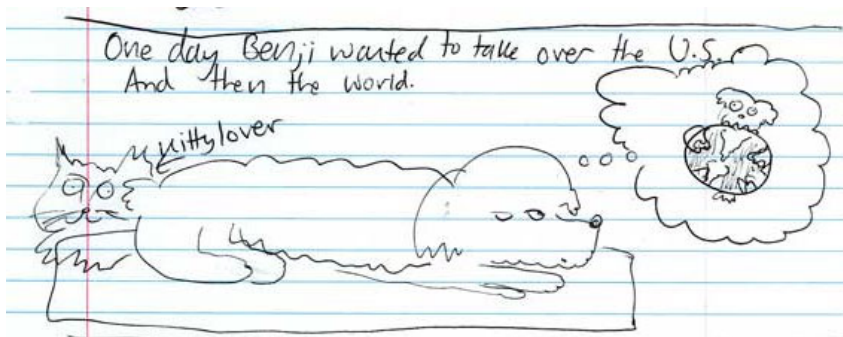 One day Benji wanted to take over the U.S.
And then the world.
Kittylover